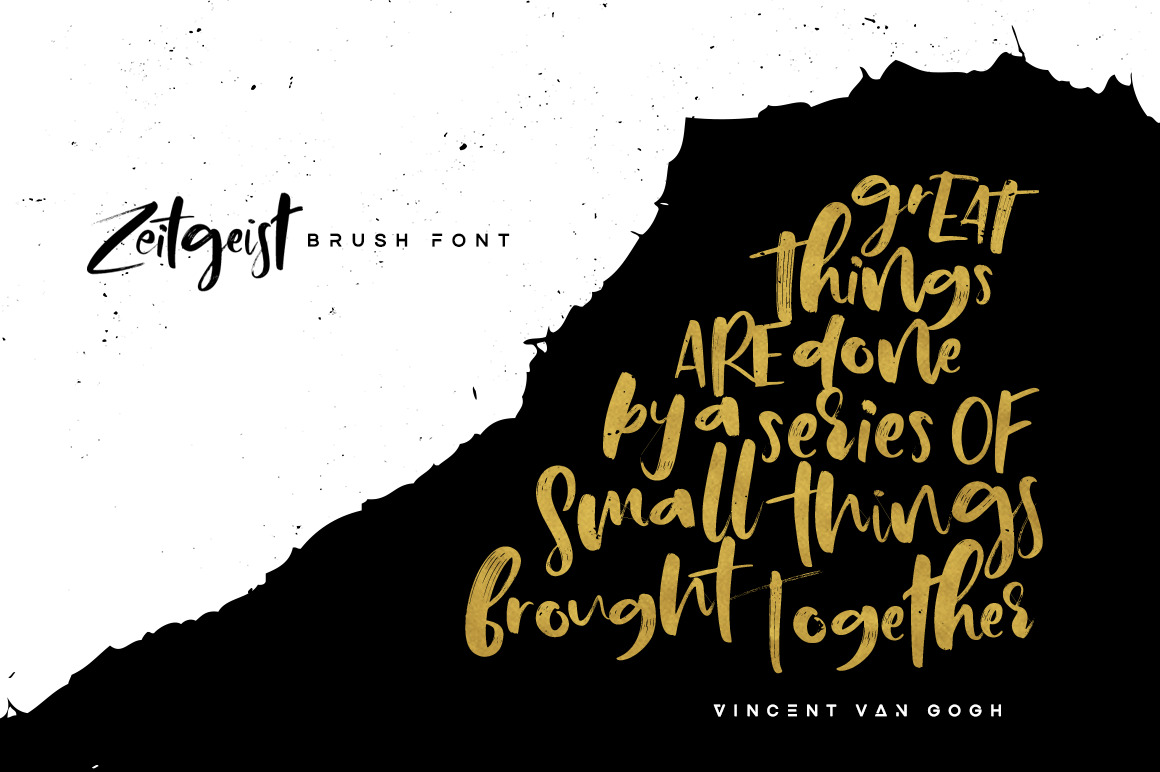 Zeitgeist BRUSH FONT
grEAT
things
ARE done
by a series OF
Small things
brought Together
VINCENT VAN GOGH